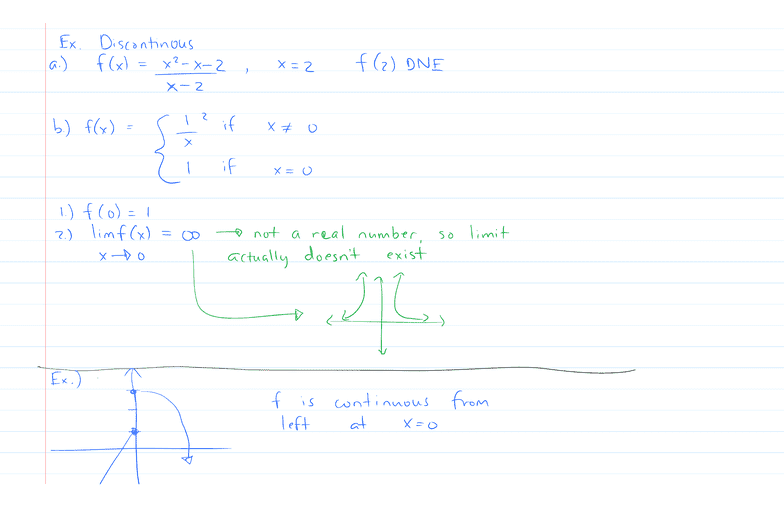 Ex. Discontinous
a.) f(x) = x²-x-2 / x-2 , x=2 f(2) DNE
b.) f(x) = { 1 ² / x if x ≠ 0
1 if x = 0
1.) f(0) = 1
2.) lim f(x) = ∞ → not a real number, so limit
x → 0 actually doesn't exist
Ex.)
f is continuous from
left at x=0